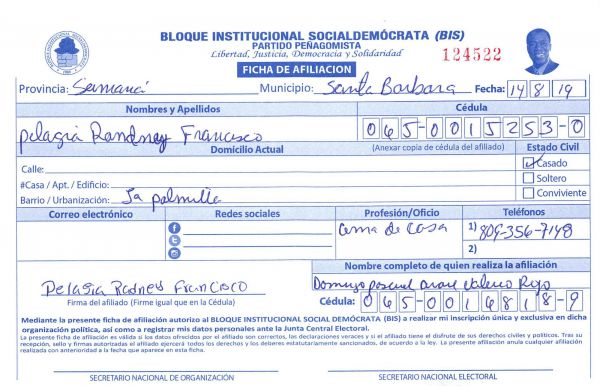 BLOQUE INSTITUCIONAL SOCIALDEMÓCRATA (BIS)
PARTIDO PEÑAGOMISTA
Libertad, Justicia, Democracia y Solidaridad
124522
FICHA DE AFILIACION
Provincia: Samaná Municipio: Santa Barbara Fecha: 14 8 19
Nombres y Apellidos Cédula
pelagia Randney Francisco 065-0015253-0
Domicilio Actual (Anexar copia de cédula del afiliado) Estado Civil
Calle: Casado
#Casa / Apt. / Edificio: Soltero
Barrio / Urbanización: La palmilla Conviviente
Correo electrónico Redes sociales Profesión/Oficio Teléfonos
ama de casa 1) 809-356-7148
2)
Nombre completo de quien realiza la afiliación
Pelagia Radney Francisco Domingo pascual Valerio Rojo
Firma del afiliado (Firme igual que en la Cédula) Cédula: 065-0016818-9
Mediante la presente ficha de afiliación autorizo al BLOQUE INSTITUCIONAL SOCIAL DEMÓCRATA (BIS) a realizar mi inscripción única y exclusiva en dicha
organización política, así como a registrar mis datos personales ante la Junta Central Electoral.
La presente ficha de afiliación es válida si los datos ofrecidos por el afiliado son correctos, las declaraciones veraces y si el afiliado tiene el disfrute de sus derechos civiles y políticos. Tras su
recepción, sello y firmas autorizadas el afiliado ejercerá todos los derechos y los deberes estatutariamente sancionados, de acuerdo a la ley. La presente afiliación anula cualquier afiliación
realizada con anterioridad a la fecha que aparece en esta ficha.
SECRETARIO NACIONAL DE ORGANIZACIÓN SECRETARIO NACIONAL ELECTORAL